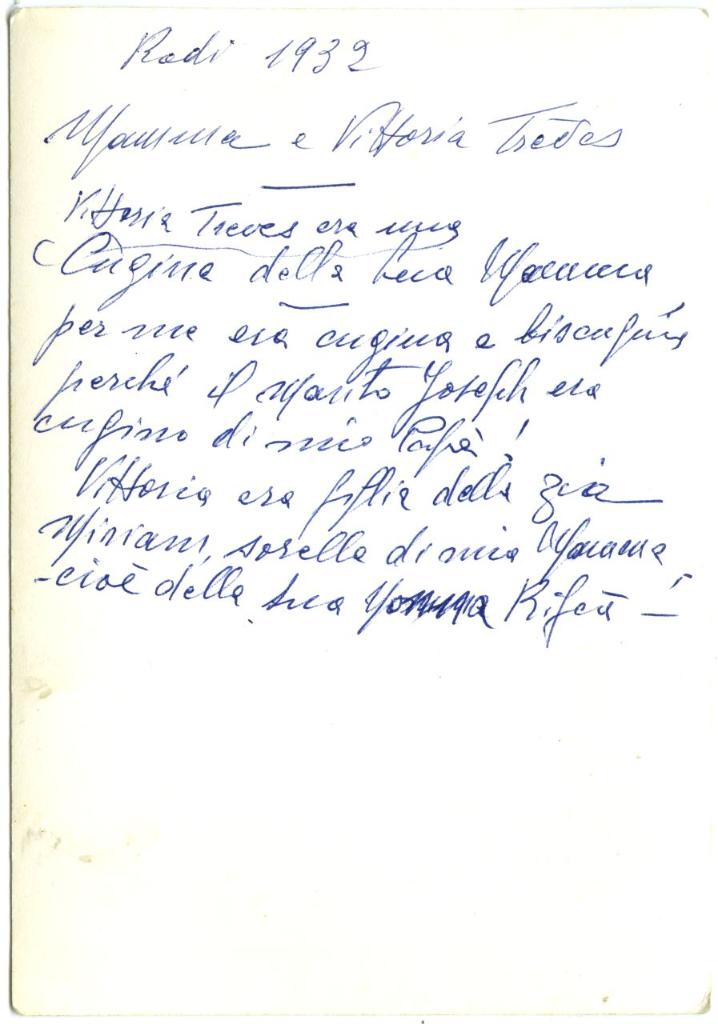 Rodi 1932
Mamma e Vittoria Treves
Vittoria Treves era una
(Cugina della tua Mamma
per me era cugina e biscugina
perché il marito Joseph era
cugino di mio Papà!
Vittoria era figlia della zia
Miriam, sorella di mia Mamma
-cioè della tua Nonna Rifcà-!